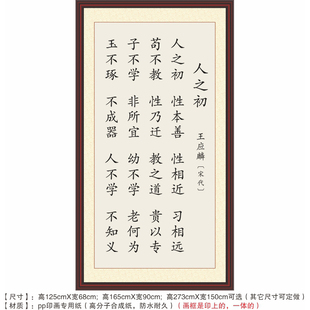 人之初
王应麟〔宋代〕
人之初 性本善 性相近 习相远
苟不教 性乃迁 教之道 贵以专
子不学 非所宜 幼不学 老何为
玉不琢 不成器 人不学 不知义
【尺寸】：高125cmX宽68cm; 高165cmX宽90cm; 高273cmX宽150cm可选（其它尺寸可定做）
【材质】：pp印画专用纸（高分子合成纸，防水耐久）（画框是印上的，一体的）